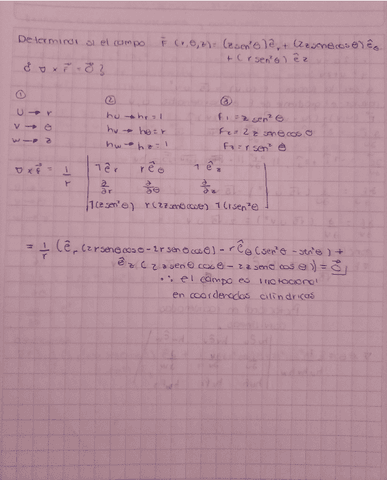 Determinar si el campo F̄ (r, θ, z) = (z sen²θ) ê_r + (2z senθ cosθ) ê_θ
+ (r sen²θ) ê_z
¿ ∇ × F̄ = 0̄ ?
① ② ③
U → r hu → hr = 1 F₁ = z sen²θ
V → θ hv → hθ = r F₂ = 2z senθ cosθ
w → z hw → hz = 1 F₃ = r sen²θ
∇ × F̄ = 1/r | 1ê_r rê_θ 1ê_z |
∂/∂r ∂/∂θ ∂/∂z
1(z sen²θ) r(2z senθ cosθ) 1(r sen²θ)
= 1/r (ê_r (2r senθ cosθ - 2r senθ cosθ) - rê_θ (sen²θ - sen²θ) +
ê_z (2z senθ cosθ - 2z senθ cosθ)) = 0̄
∴ el campo es irrotacional
en coordenadas cilíndricas